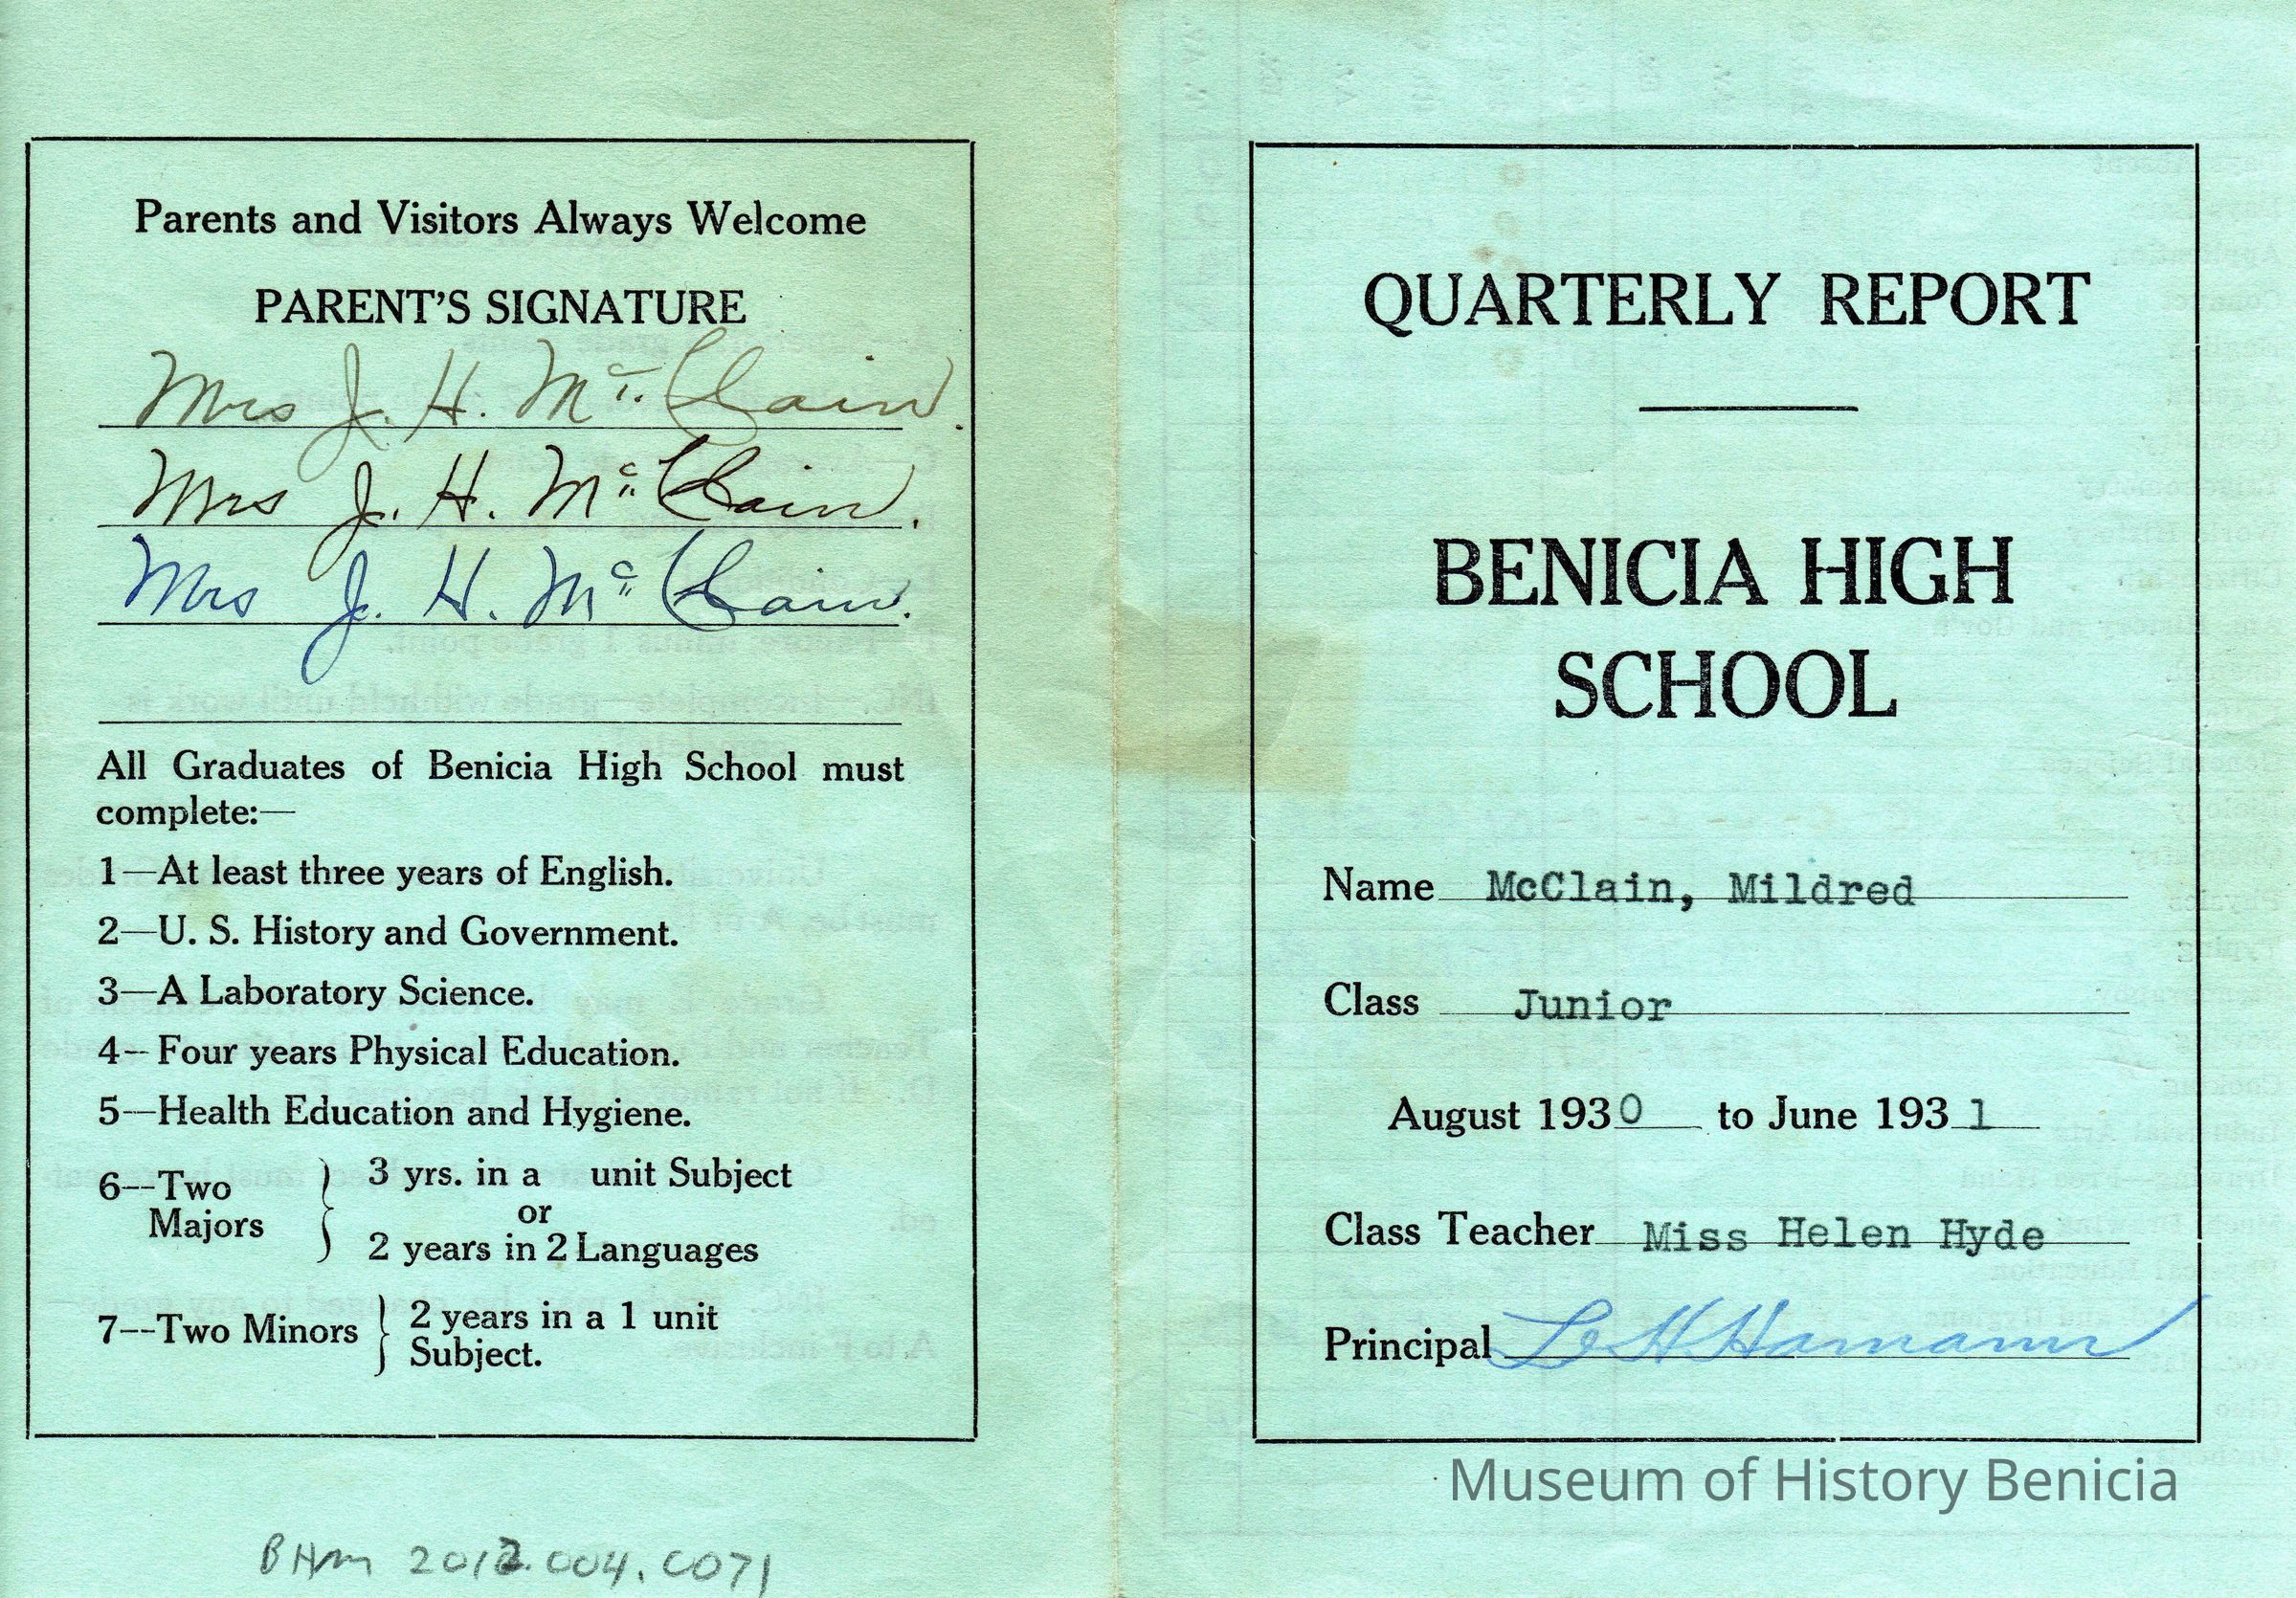 Parents and Visitors Always Welcome
PARENT'S SIGNATURE
Mrs J. H. McClain.
Mrs J. H. McClain.
Mrs J. H. McClain.
All Graduates of Benicia High School must
complete:—
1—At least three years of English.
2—U. S. History and Government.
3—A Laboratory Science.
4—Four years Physical Education.
5—Health Education and Hygiene.
6—Two Majors } 3 yrs. in a unit Subject
or
2 years in 2 Languages
7—Two Minors } 2 years in a 1 unit
Subject.
BHM 2012.004.0071
QUARTERLY REPORT
BENICIA HIGH
SCHOOL
Name McClain, Mildred
Class Junior
August 1930 to June 1931
Class Teacher Miss Helen Hyde
Principal L H Hamann
Museum of History Benicia